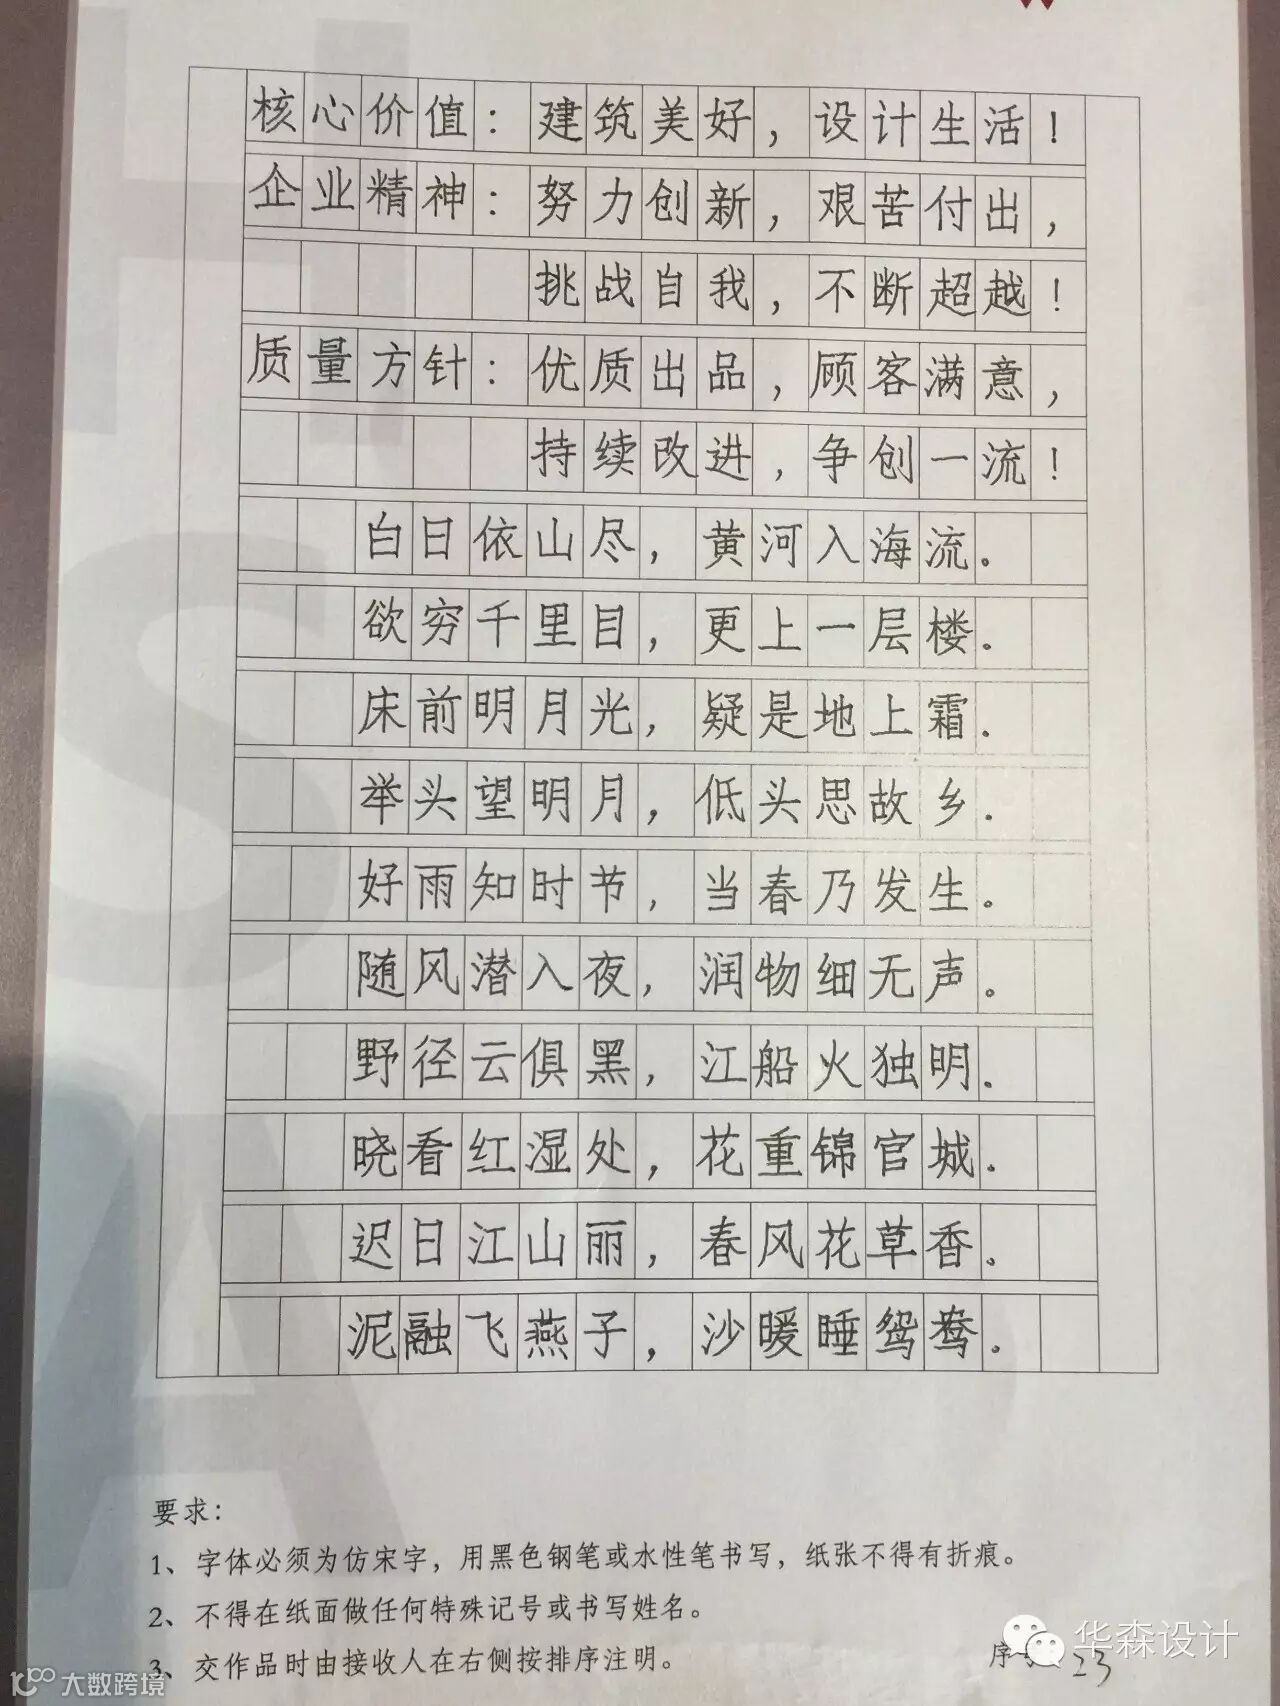 核心价值：建筑美好，设计生活！
企业精神：努力创新，艰苦付出，
挑战自我，不断超越！
质量方针：优质出品，顾客满意，
持续改进，争创一流！
白日依山尽，黄河入海流。
欲穷千里目，更上一层楼.
床前明月光，疑是地上霜.
举头望明月，低头思故乡.
好雨知时节，当春乃发生。
随风潜入夜，润物细无声。
野径云俱黑，江船火独明.
晓看红湿处，花重锦官城.
迟日江山丽，春风花草香。
泥融飞燕子，沙暖睡鸳鸯.
要求：
1、字体必须为仿宋字，用黑色钢笔或水性笔书写，纸张不得有折痕。
2、不得在纸面做任何特殊记号或书写姓名。
3、交作品时由接收人在右侧按排序注明。
序号 23
华森设计
大数跨境